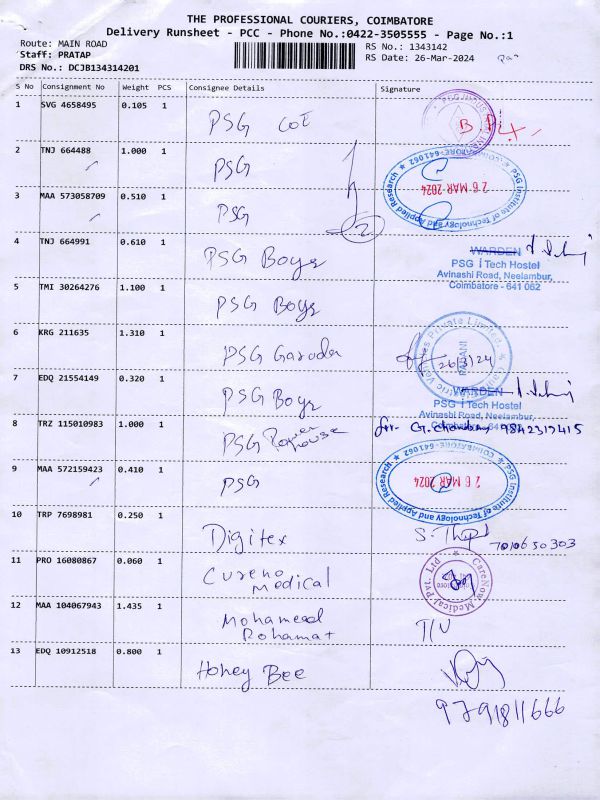 THE PROFESSIONAL COURIERS, COIMBATORE
Delivery Runsheet - PCC - Phone No.:0422-3505555 - Page No.:1
Route: MAIN ROAD
Staff: PRATAP
DRS No.: DCJB134314201
RS No.: 1343142
RS Date: 26-Mar-2024
S No Consignment No Weight PCS Consignee Details Signature
1 SVG 4658495 0.105 1 PSG COE
2 TNJ 664488 1.000 1 PSG
PSG Institute of Technology and Applied Research ★ COIMBATORE-641062 ★
26 MAR 2024
3 MAA 573058709 0.510 1 PSG
2
4 TNJ 664991 0.610 1 PSG Boys
WARDEN
PSG iTech Hostel
Avinashi Road, Neelambur,
Coimbatore - 641 062
5 TMI 30264276 1.100 1 PSG Boys
6 KRG 211635 1.310 1 PSG Garuda
26/3/24
7 EDQ 21554149 0.320 1 PSG Boys
WARDEN
PSG iTech Hostel
Avinashi Road, Neelambur,
8 TRZ 115010983 1.000 1 PSG Power house
9842319415
9 MAA 572159423 0.410 1 PSG
PSG Institute of Technology and Applied Research ★ COIMBATORE-641062 ★
26 MAR 2024
10 TRP 7698981 0.250 1 Digitex
7010650303
11 PRO 16080867 0.060 1 Cureno Medical
CareNow Medical Pvt. Ltd
12 MAA 104067943 1.435 1 Mohameed Rohamat T/V
13 EDQ 10912518 0.800 1 Honey Bee
9791811666